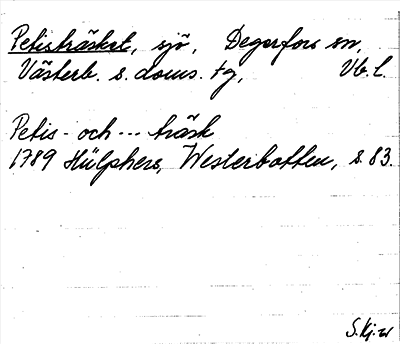 Petisträsket, sjö, Degerfors sn,
Västerb. s. doms. tg, Vb. l.
Petis- och --- träsk
1789 Hülphers, Westerbotten, s. 83.
S.Kj-w